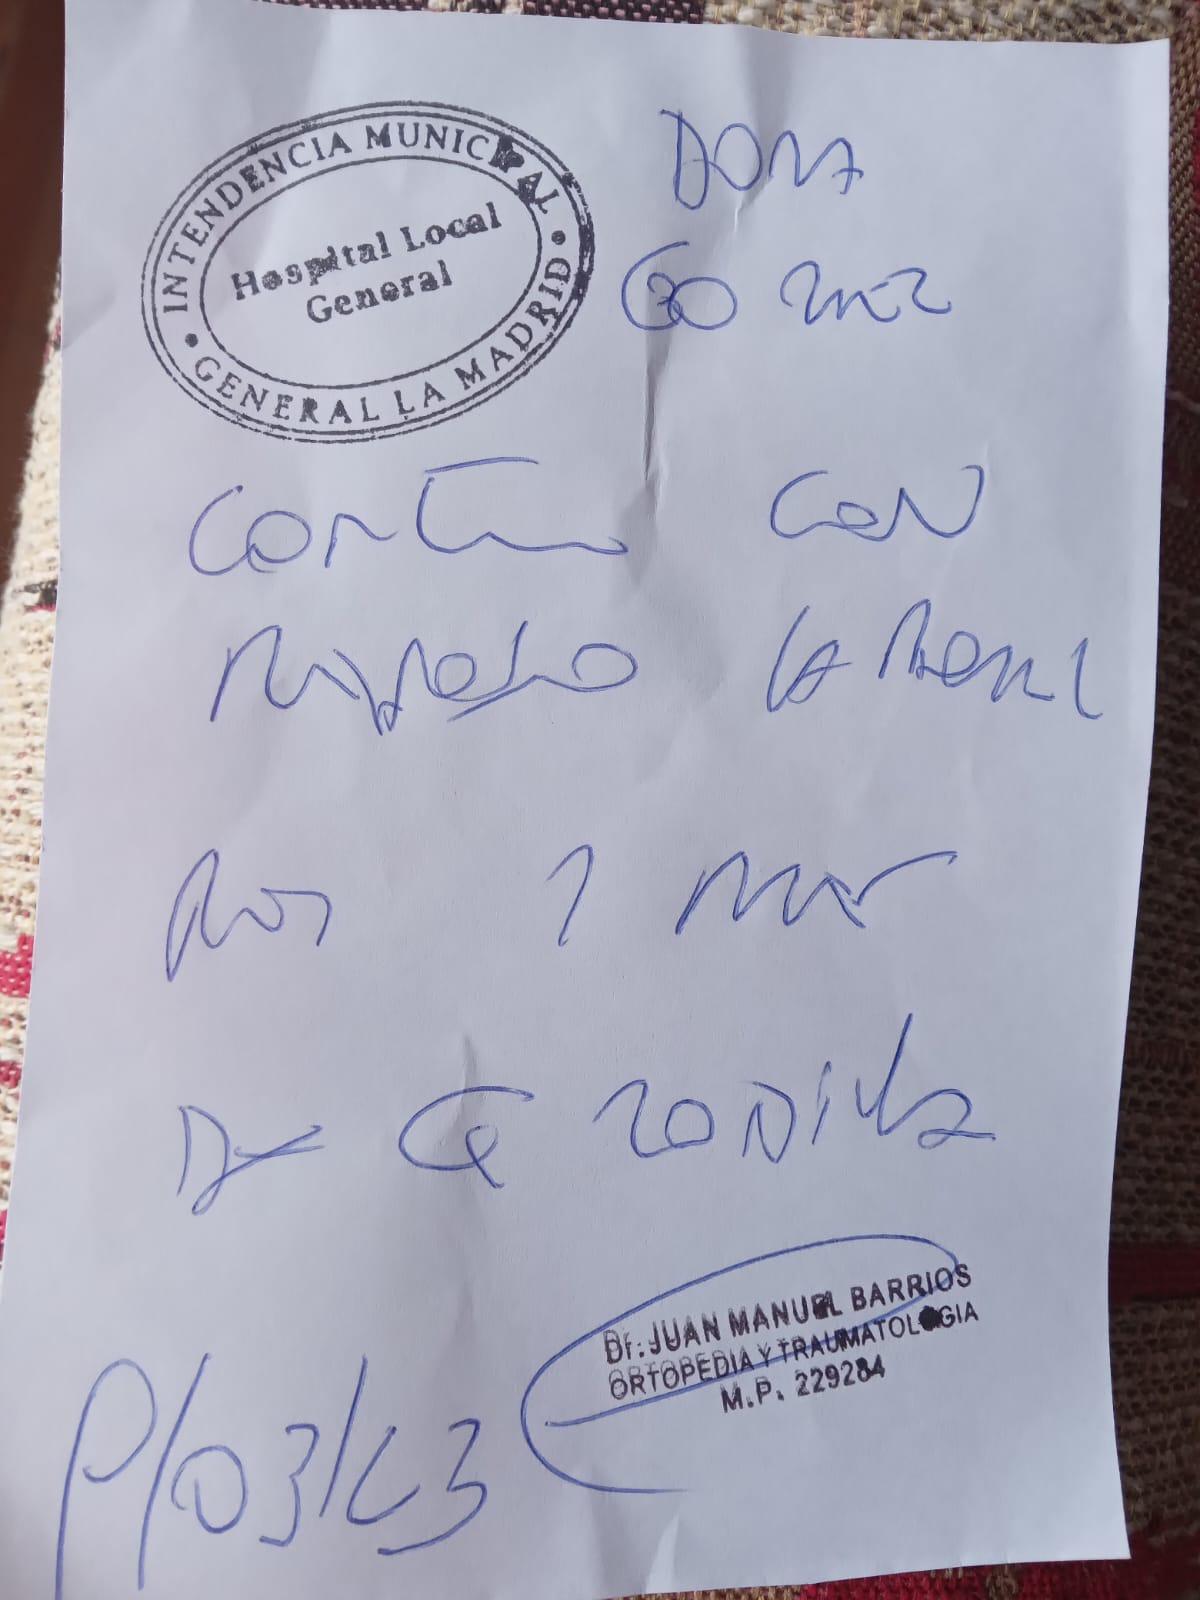 INTENDENCIA MUNICIPAL
Hospital Local
General
GENERAL LA MADRID
DORA
GOMEZ
CON
REPOSO LABORAL
POR 1 MES
DE RODILLA
Dr. JUAN MANUEL BARRIOS
ORTOPEDIA Y TRAUMATOLOGIA
M.P. 229284